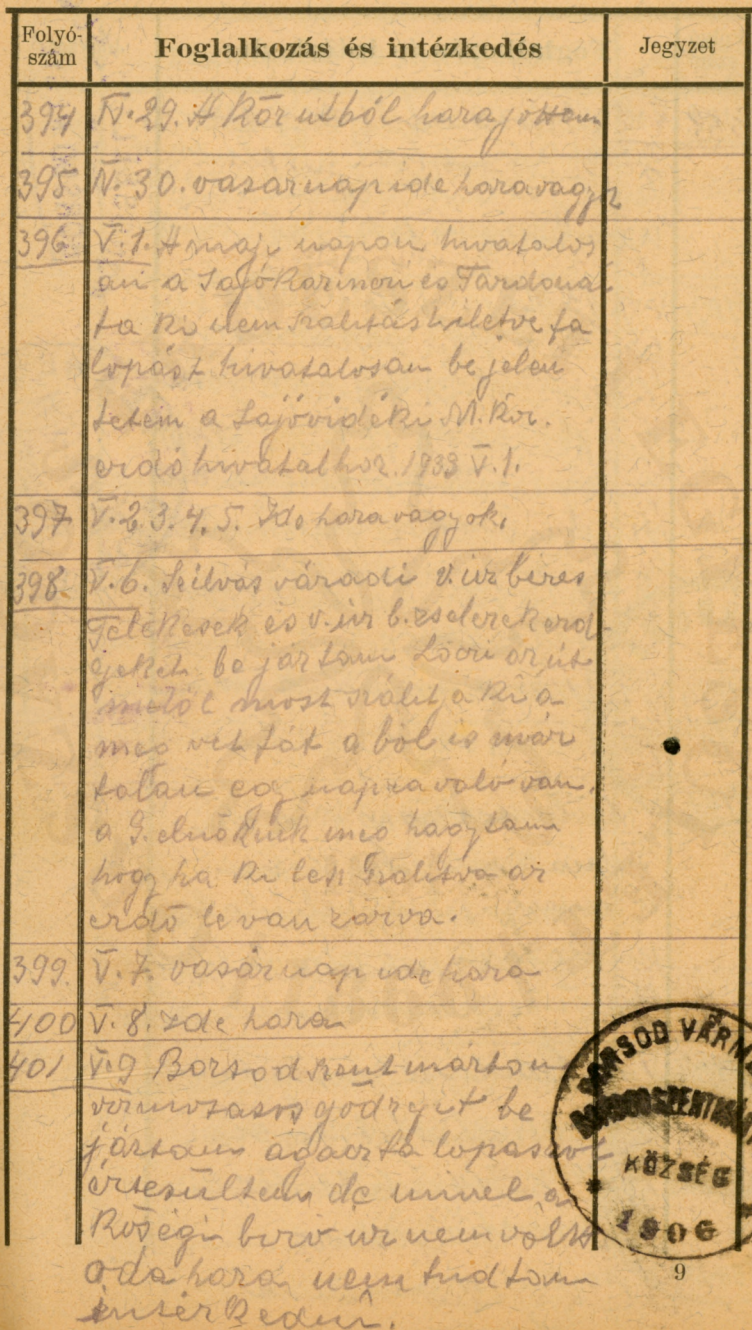 Folyó-
szám
Foglalkozás és intézkedés
Jegyzet
394 IV. 29. A Kőr utból hara jöttem
395 IV. 30. vasárnap ide hara vagyo
396 V. 1. A maji napon hivatalos
an a Sajó Karinon és Tardona
ta ki nem szálitás h. iletve fa
lopást hivatalosan be jelen
tetem a Sajóvidéki M. Kir.
erdő hivatalhoz. 1933 V. 1.
397 V. 2. 3. 4. 5. Ide hara vagyok.
398 V. 6. Szilvás váradi v. úr béres
Telekesek és v. úr b. zselerek erd
jeket be jártam
most szálit ja ki a
meg vet fát a ból is már
talán egy napra való van.
a G. elnöknek meg hagytam
hogy ha ki lesz szálitva az
erdő le van zárva.
399. V. 7. vasárnap ide hara
400 V. 8. ide hara
401 V. 9 Borsod szent márton
gödryit be
jártam lopaszot
értesültem de mivel a
Köségi biró ur nem vólt
oda hara nem tudtam
intérkedni.
BORSOD VÁRM
BORSODSZENTMÁRT
KÖZSÉG
1906
9